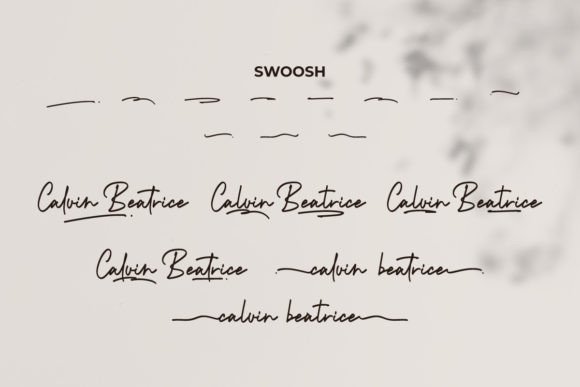 SWOOSH
Calvin Beatrice Calvin Beatrice Calvin Beatrice
Calvin Beatrice calvin beatrice
calvin beatrice